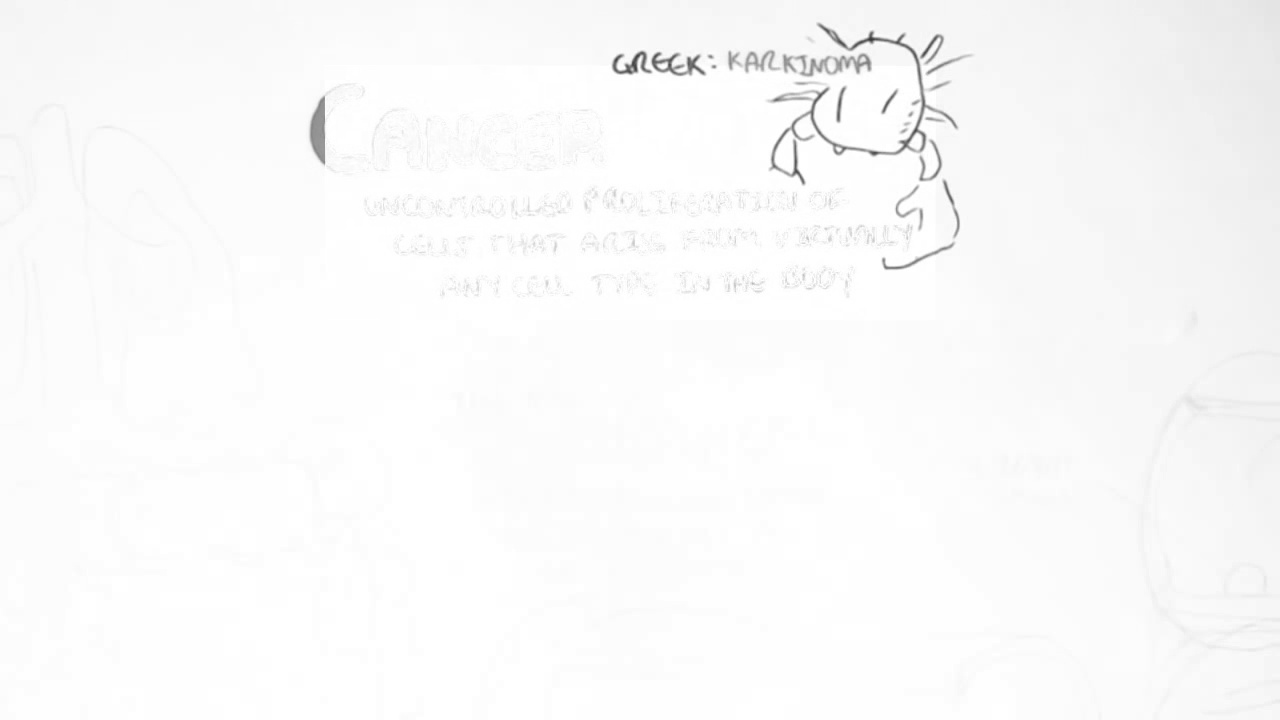 GREEK: KARKINOMA
CANCER
UNCONTROLLED PROLIFERATION OF
CELLS THAT ARISE FROM VIRTUALLY
ANY CELL TYPE IN THE BODY